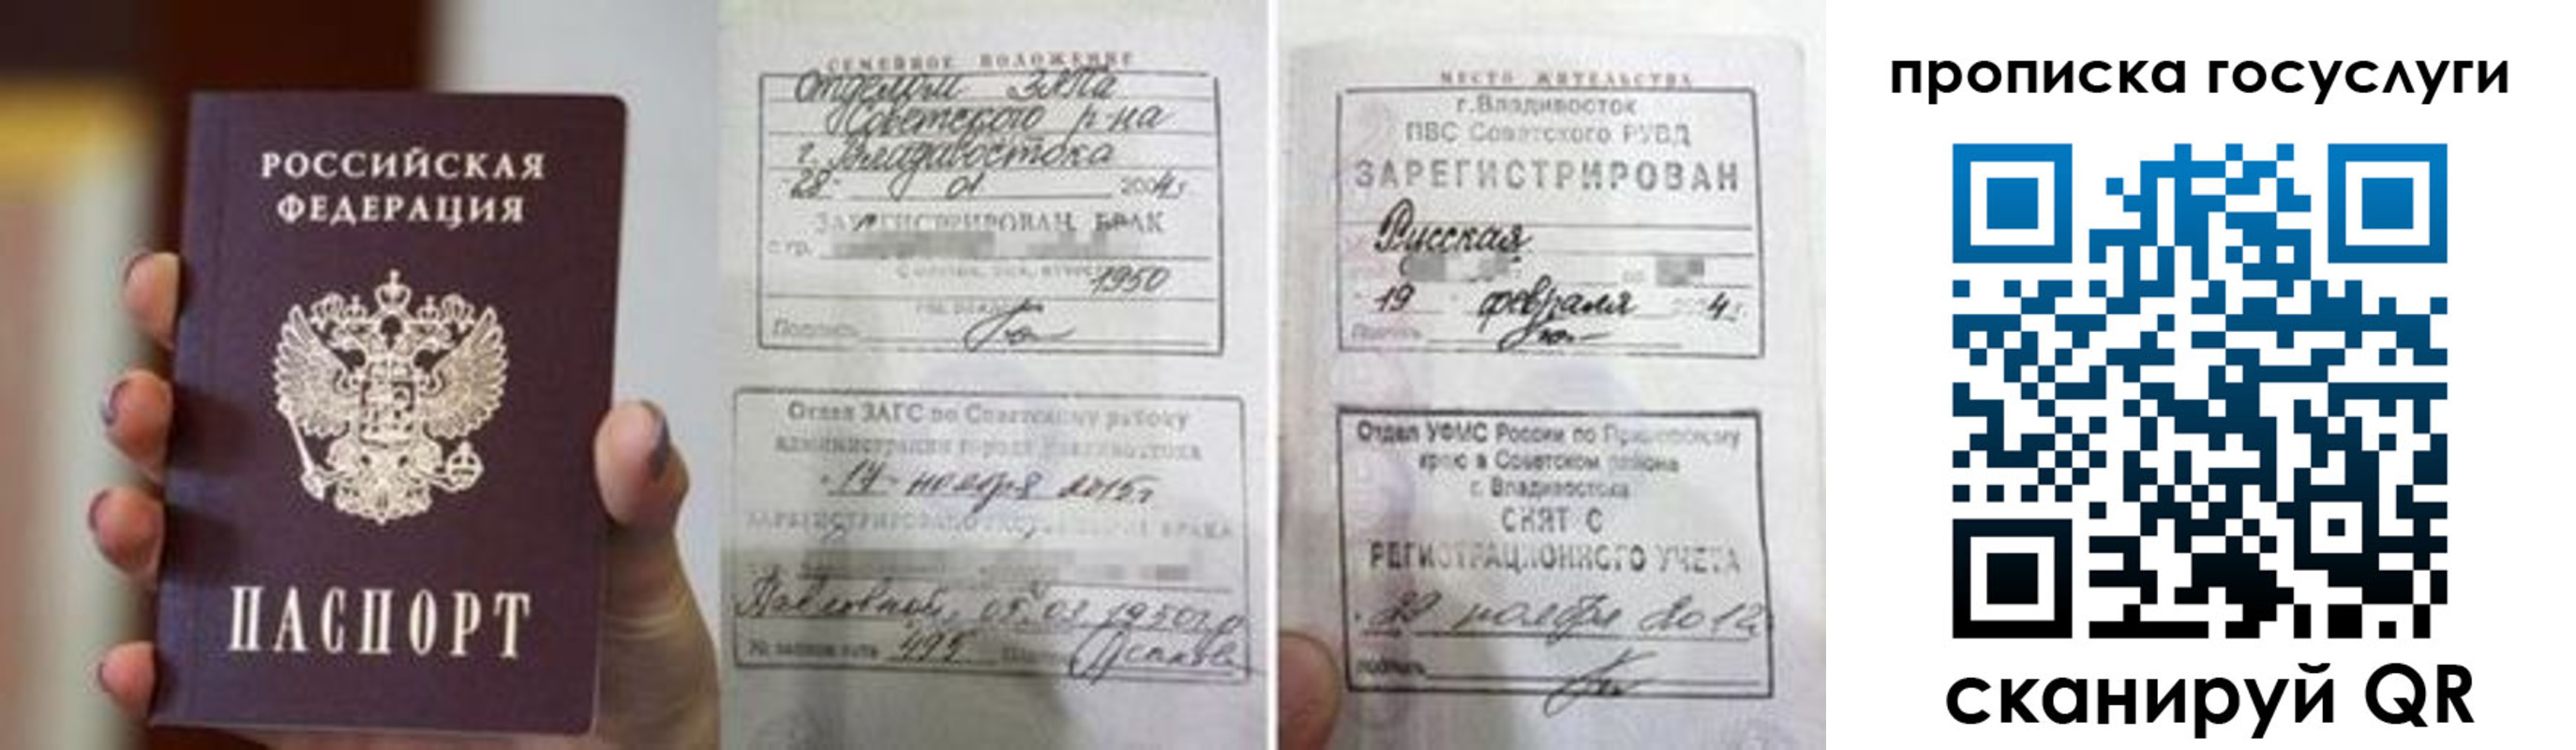 РОССИЙСКАЯ
ФЕДЕРАЦИЯ
ПАСПОРТ
СЕМЕЙНОЕ ПОЛОЖЕНИЕ
Отделом ЗАГСа
Советского р-на
г. Владивостока
"28" 01 2004г.
ЗАРЕГИСТРИРОВАН БРАК
с гр.
1950
Подпись
Отдел ЗАГС по Советскому району
администрации города Владивостока
"17" ноября 2015г
БРАКА
Павловной, 05.03.1950г.р
495
МЕСТО ЖИТЕЛЬСТВА
г.Владивосток
ПВС Советского РУВД
ЗАРЕГИСТРИРОВАН
Русская
19 февраля 4г.
Подпись
Отдел УФМС России по Приморскому
краю в Советском районе
г. Владивостока
СНЯТ С
РЕГИСТРАЦИОННОГО УЧЕТА
ноября 2012
подпись
прописка госуслуги
сканируй QR